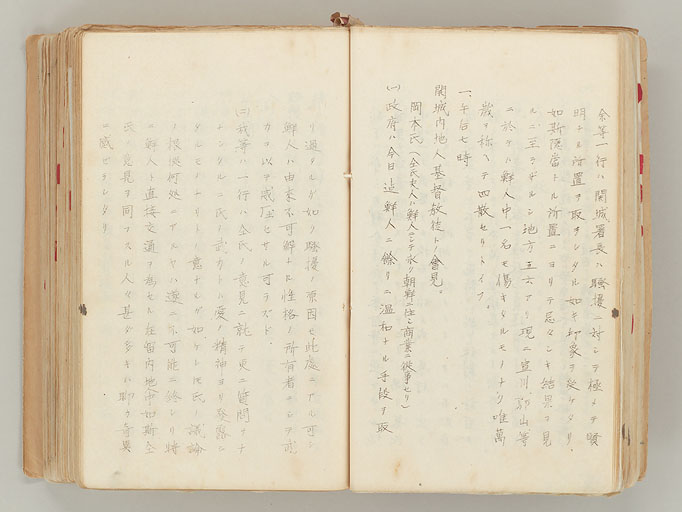 余等一行ハ開城署長ハ騒擾ニ対シテ極メテ賢
明ナル所置ヲ取ラレタル如キ印象ヲ受ケタリ、
如斯穏当ナル所置ニヨリテ忌ハシキ結果ヲ見
ルニ至ラザルシ地方五六アリ現ニ宣川、郭山等
ニ於テハ鮮人中一名モ傷キタルモノナク唯萬
歳ヲ称ヘテ四散セリトイフ、
一、午后七時
開城内地人基督教徒トノ會見。
岡本氏(仝氏夫人ハ鮮人ニシテ永ク朝鮮ニ住ミ商業ニ従事セリ)
㈠政府ハ今日迄鮮人ニ餘リニ温和ナル手段ヲ取
リ過タルガ如シ騒擾ノ原因モ此處ニアル可シ
鮮人ハ由来不可解ナル性格ノ所有者ナレヲ
カヲ以テ威圧セザル可ラズト、
㈡我等ハ一行ハ仝氏ノ意見ニ就テ更ニ質問ヲナ
シタルニ氏ノ武力トハ
タルモノナリトノ意ナルガ如ケレ氏ノ議論
ノ根拠何処ニアルヤハ遂ニ不可能ニ餘レリ将
ニ鮮人ト直接交通ヲ為セル在留内地中如斯仝
氏ノ意見ヲ同フスル人々甚ダ多キハ聊カ奇異
ニ感ゼラレタリ